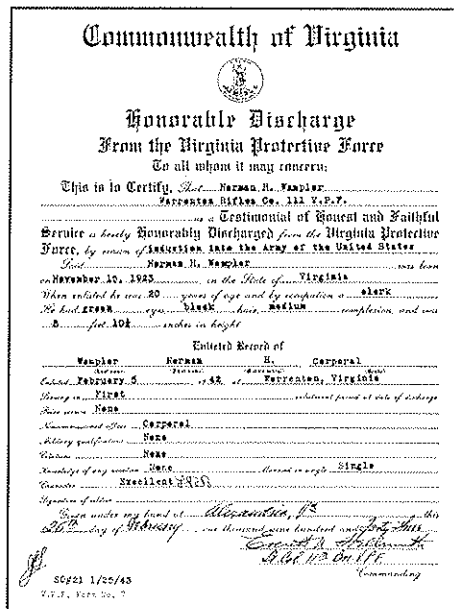 Commonwealth of Virginia
Honorable Discharge
From the Virginia Protective Force
To all whom it may concern:
This is to Certify, That Herman H. Wampler
Warrenton Rifles Co. 111 V.P.F.
as a Testimonial of Honest and Faithful
Service is hereby Honorably Discharged from the Virginia Protective
Force, by reason of induction into the Army of the United States
Said Herman H. Wampler was born
on November 15, 1923 in the State of Virginia
When enlisted he was 20 years of age and by occupation a clerk
He had green eyes, black hair, medium complexion, and was
5 feet 10½ inches in height
Enlisted Record of
Wampler Herman H. Corporal
Enlisted February 5 1942 at Warrenton, Virginia
Serving in First enlistment period at date of discharge
Prior service None
Noncommissioned officer Corporal
Military qualifications None
Citations None
Knowledge of any vocation None Married or single Single
Character Excellent
Signature of soldier
Given under my hand at Alexandria, Va this
26th day of February one thousand nine hundred and forty three
Commanding
SO#21 1/25/43
V.P.F. Form No. 7